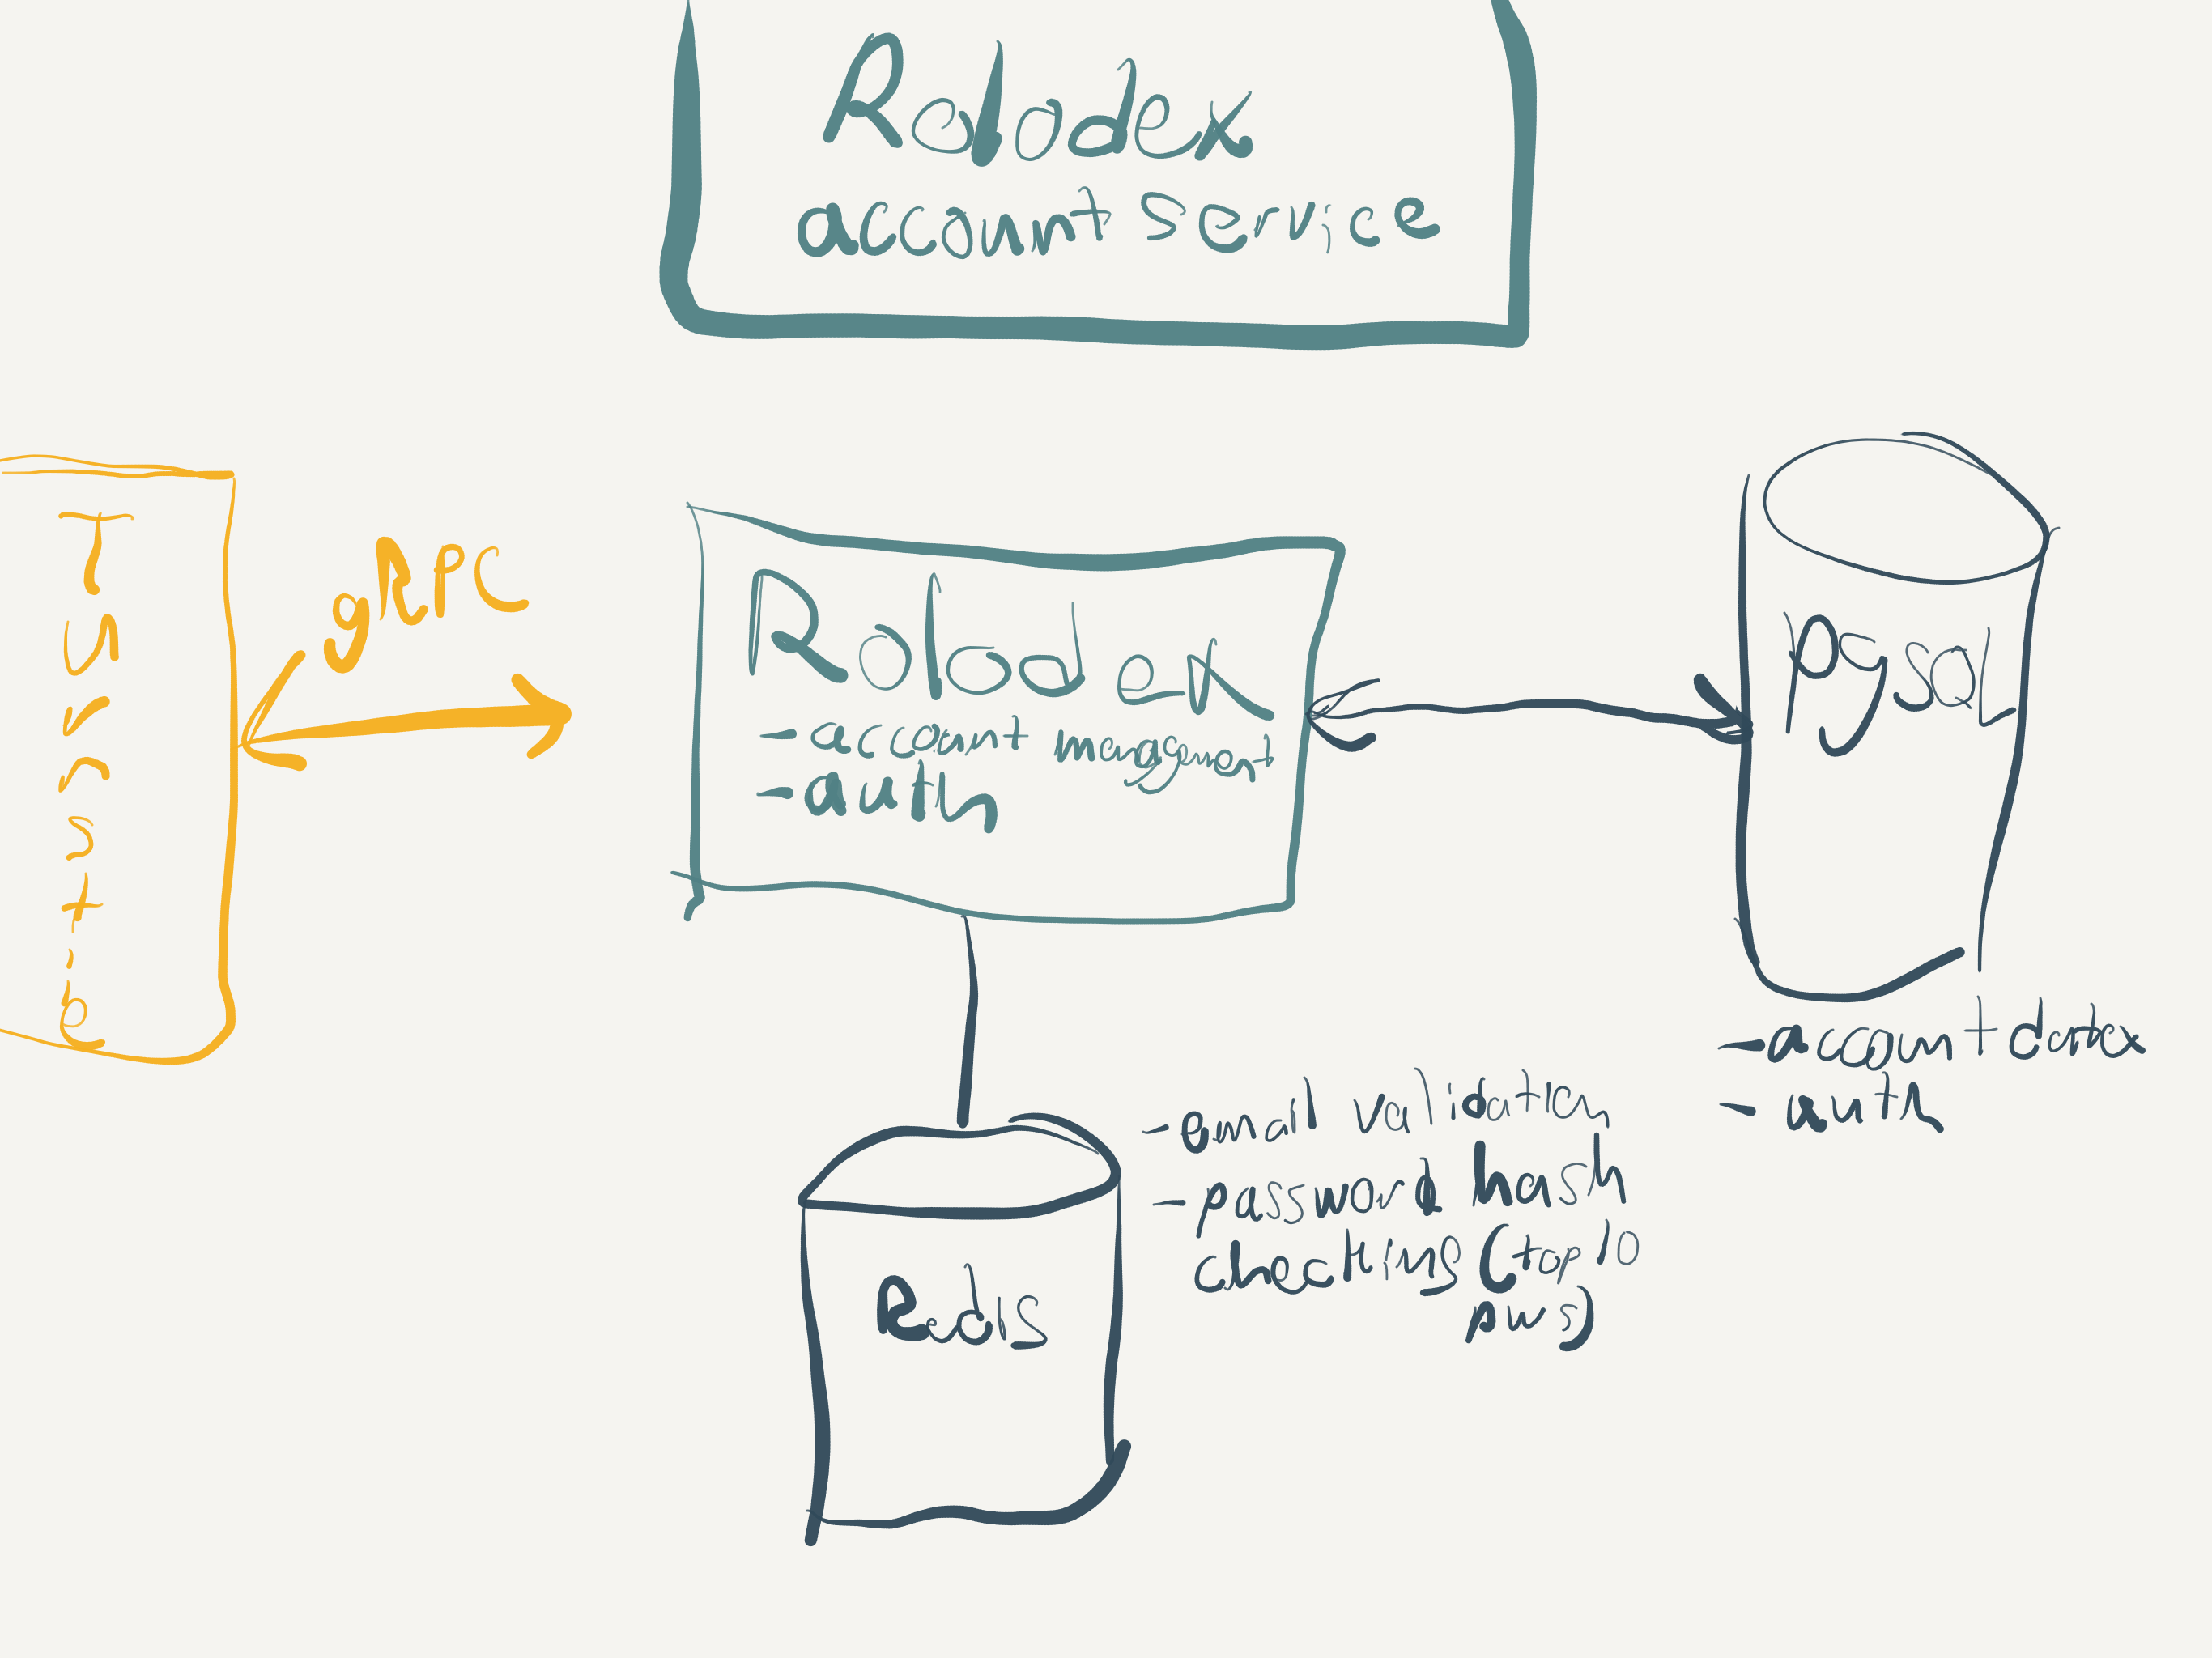 Rolodex
account service
Turnstile
gRPC
Rolodex
- account management
- auth
pgsql
- account data
- auth
Redis
- email validation
- password hash
checking (top 10
pws)